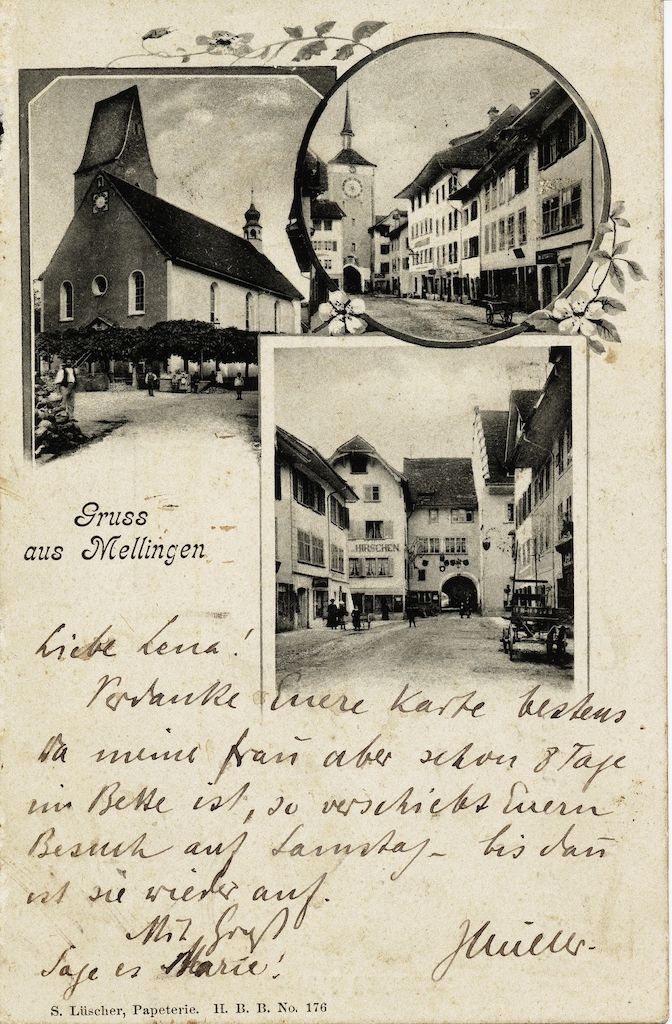 HIRSCHEN
Gruss
aus Mellingen
Liebe Lena!
Verdanke Euere Karte bestens
Da meine Frau aber schon 8 Tage
im Bette ist, so verschiebt Euern
Besuch auf Samstag - bis dan̄
ist sie wieder auf.
Mit Gruß
JMüller.
Sage es Marie!
S. Lüscher, Papeterie. H. B. B. No. 176